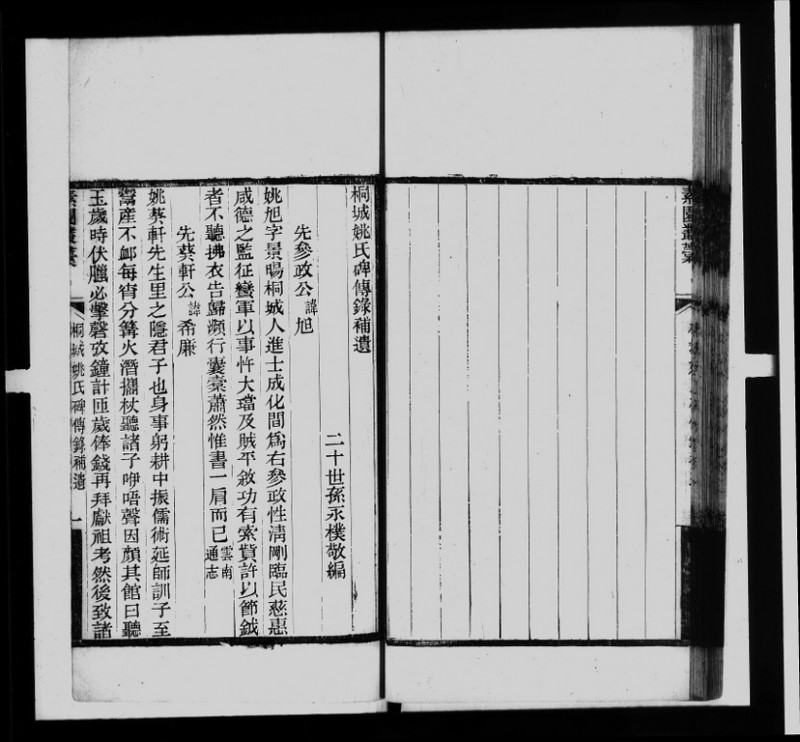 桐城姚氏碑傳錄補遺
二十世孫永樸敬編
先參政公諱旭
姚旭字景暘桐城人進士成化間爲右參政性淸剛臨民慈惠
咸德之監征蠻軍以事忤大璫及賊平敘功有索賞許以節鉞
者不聽拂衣告歸瀕行囊橐蕭然惟書一肩而已雲南通志
先葵軒公諱希廉
姚葵軒先生里之隱君子也身事躬耕中振儒術延師訓子至
鬻產不卹每宵分篝火潛攜杖聽諸子咿唔聲因顏其館曰聽
玉歲時伏臘必擊磬攷鐘計匝歲俸錢再拜獻祖考然後致諸
桐城姚氏碑傳錄補遺 一
素園叢稾
素園叢稾